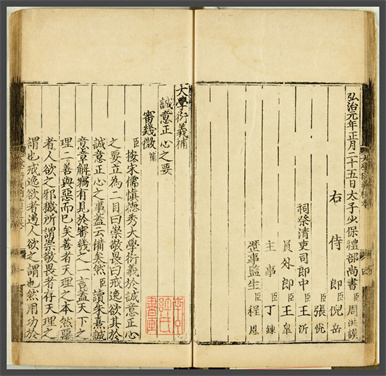 弘治元年正月二十五日太子少保禮部尚書臣周洪謨
右侍郎臣倪岳
臣張悅
祠祭清吏司郎中臣王沂
員外郎臣王皐
主事臣丁鍊
歷事監生臣程
大學衍義補
誠意正心之要
審幾微補
臣按宋儒真德秀大學衍義於誠意正心
之要立為二目曰崇敬畏曰戒逸欲其於
誠意正心之事蓋云備矣然臣讀朱熹誠
意章解竊有見於審幾之一言蓋天下之
理二善與惡而已矣善者天理之本然惡
者人欲之邪穢所謂崇敬畏者存天理之
謂也戒逸欲者遏人欲之謂也然用功於